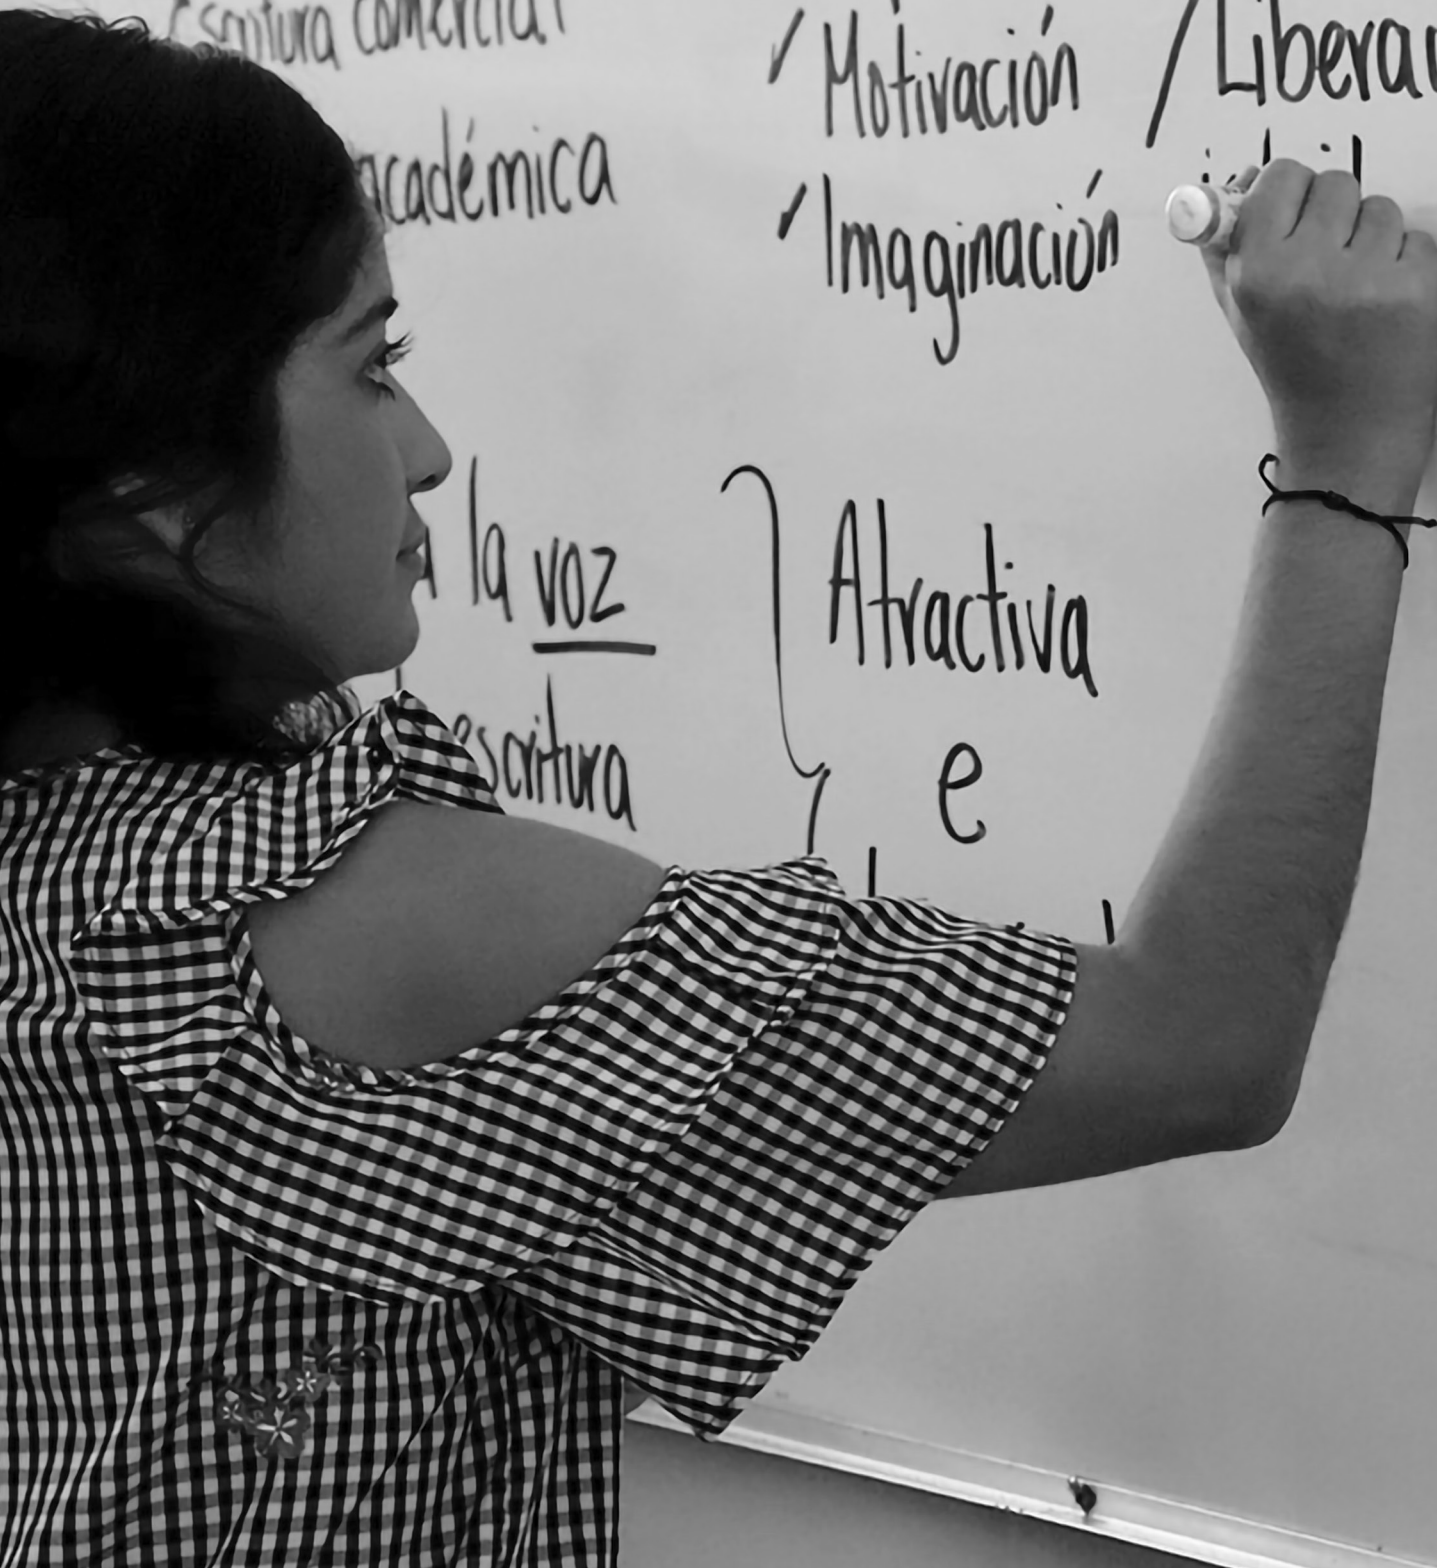 Escritura comercial
académica
✓ Motivación / Liberar
✓ Imaginación
la voz
escritura
Atractiva
e